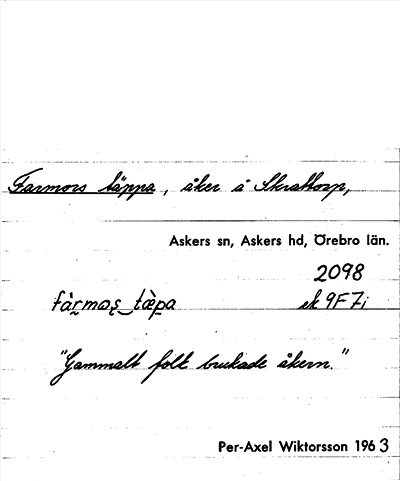 Farmors täppa, åker å Skrattorp,
Askers sn, Askers hd, Örebro län.
2098
fàrmωʂ‿tæ̀pa
ek 9F7i
"Gammalt folk brukade åkern."
Per-Axel Wiktorsson 1963